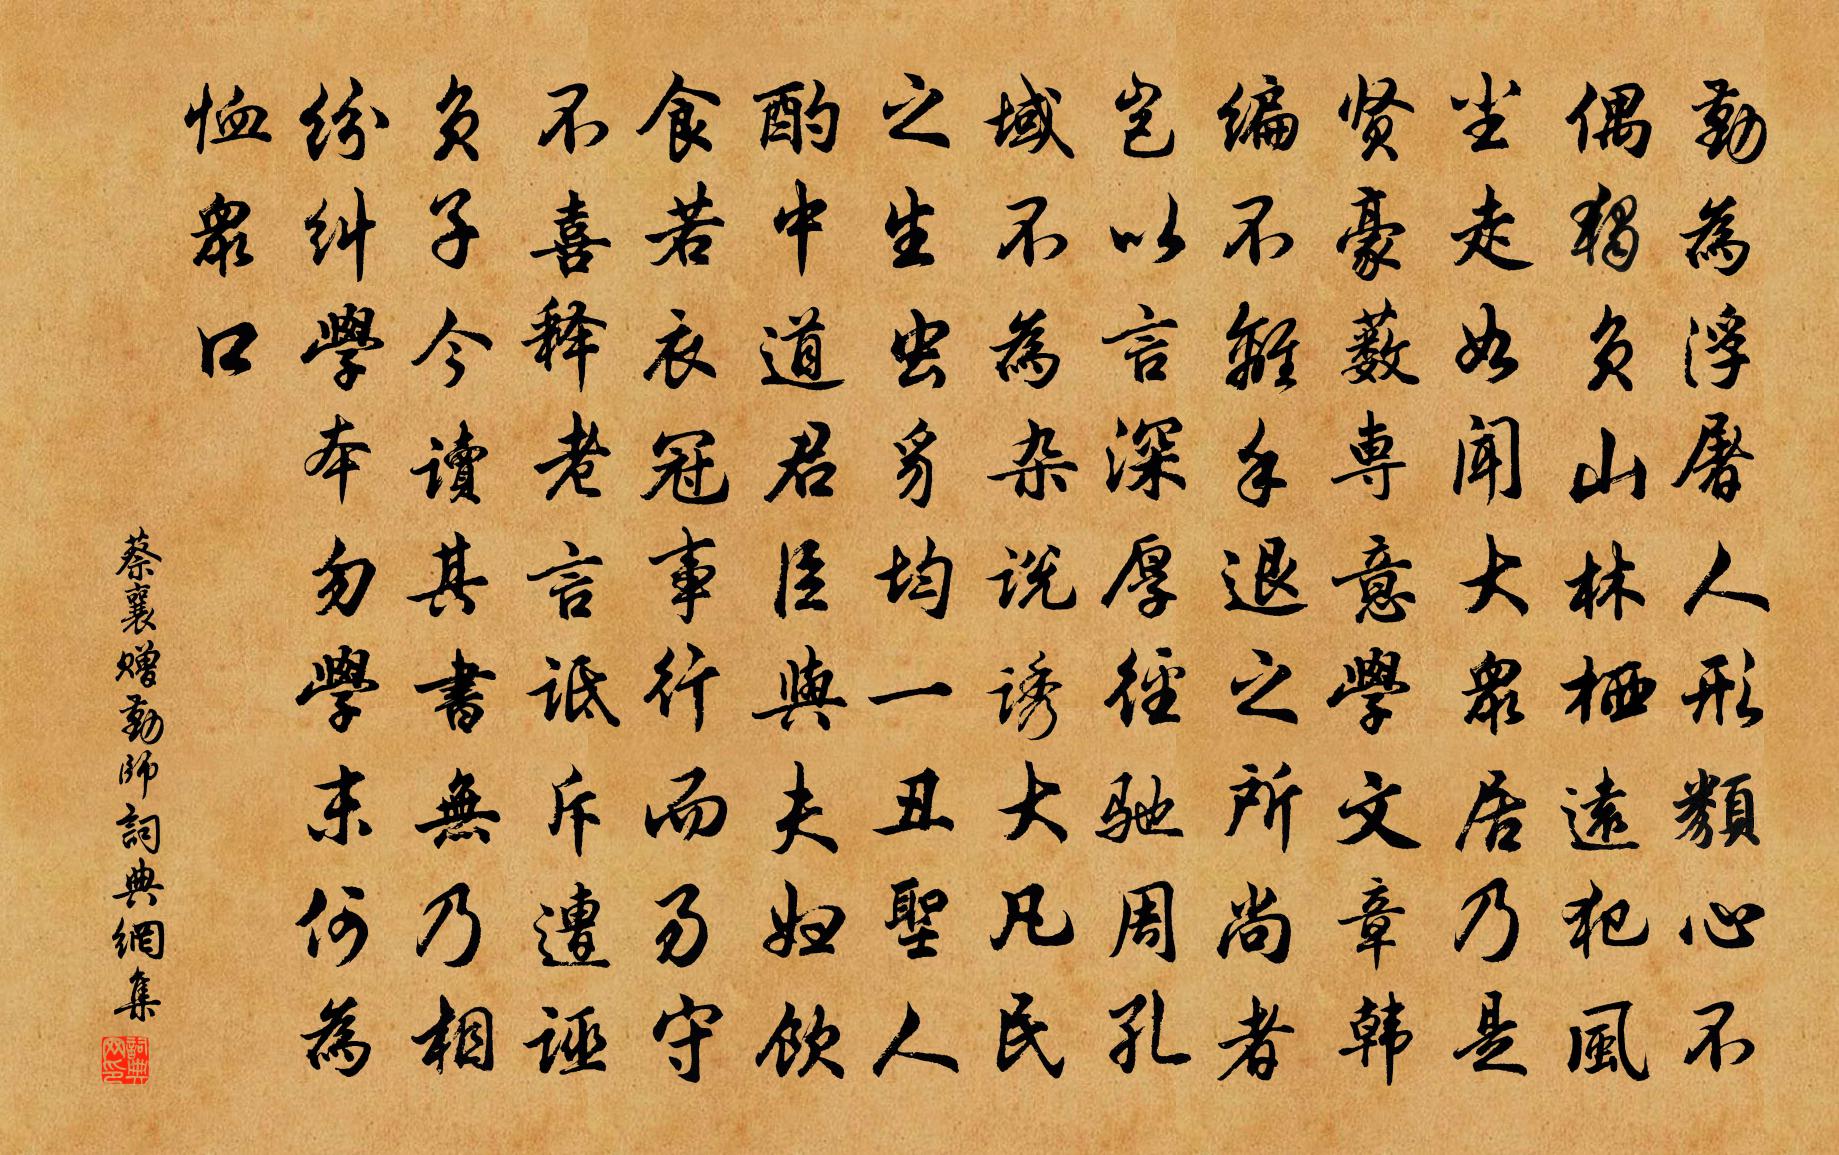 勤為浮屠人形類心不
偶獨負山林栖遠犯風
坐走如闻大衆居乃是
贤豪薮専意學文章韩
编不離手退之所尚者
岂以言深厚径驰周孔
域不為杂说诱大凡民
之生虫豸均一丑聖人
酌中道君臣與夫妇飲
食若衣冠事行而易守
不喜释老言诋斥遭诬
負子今讀其書無乃相
纷纠學本勿學末何為
恤衆口
蔡襄赠勤師詞典網集